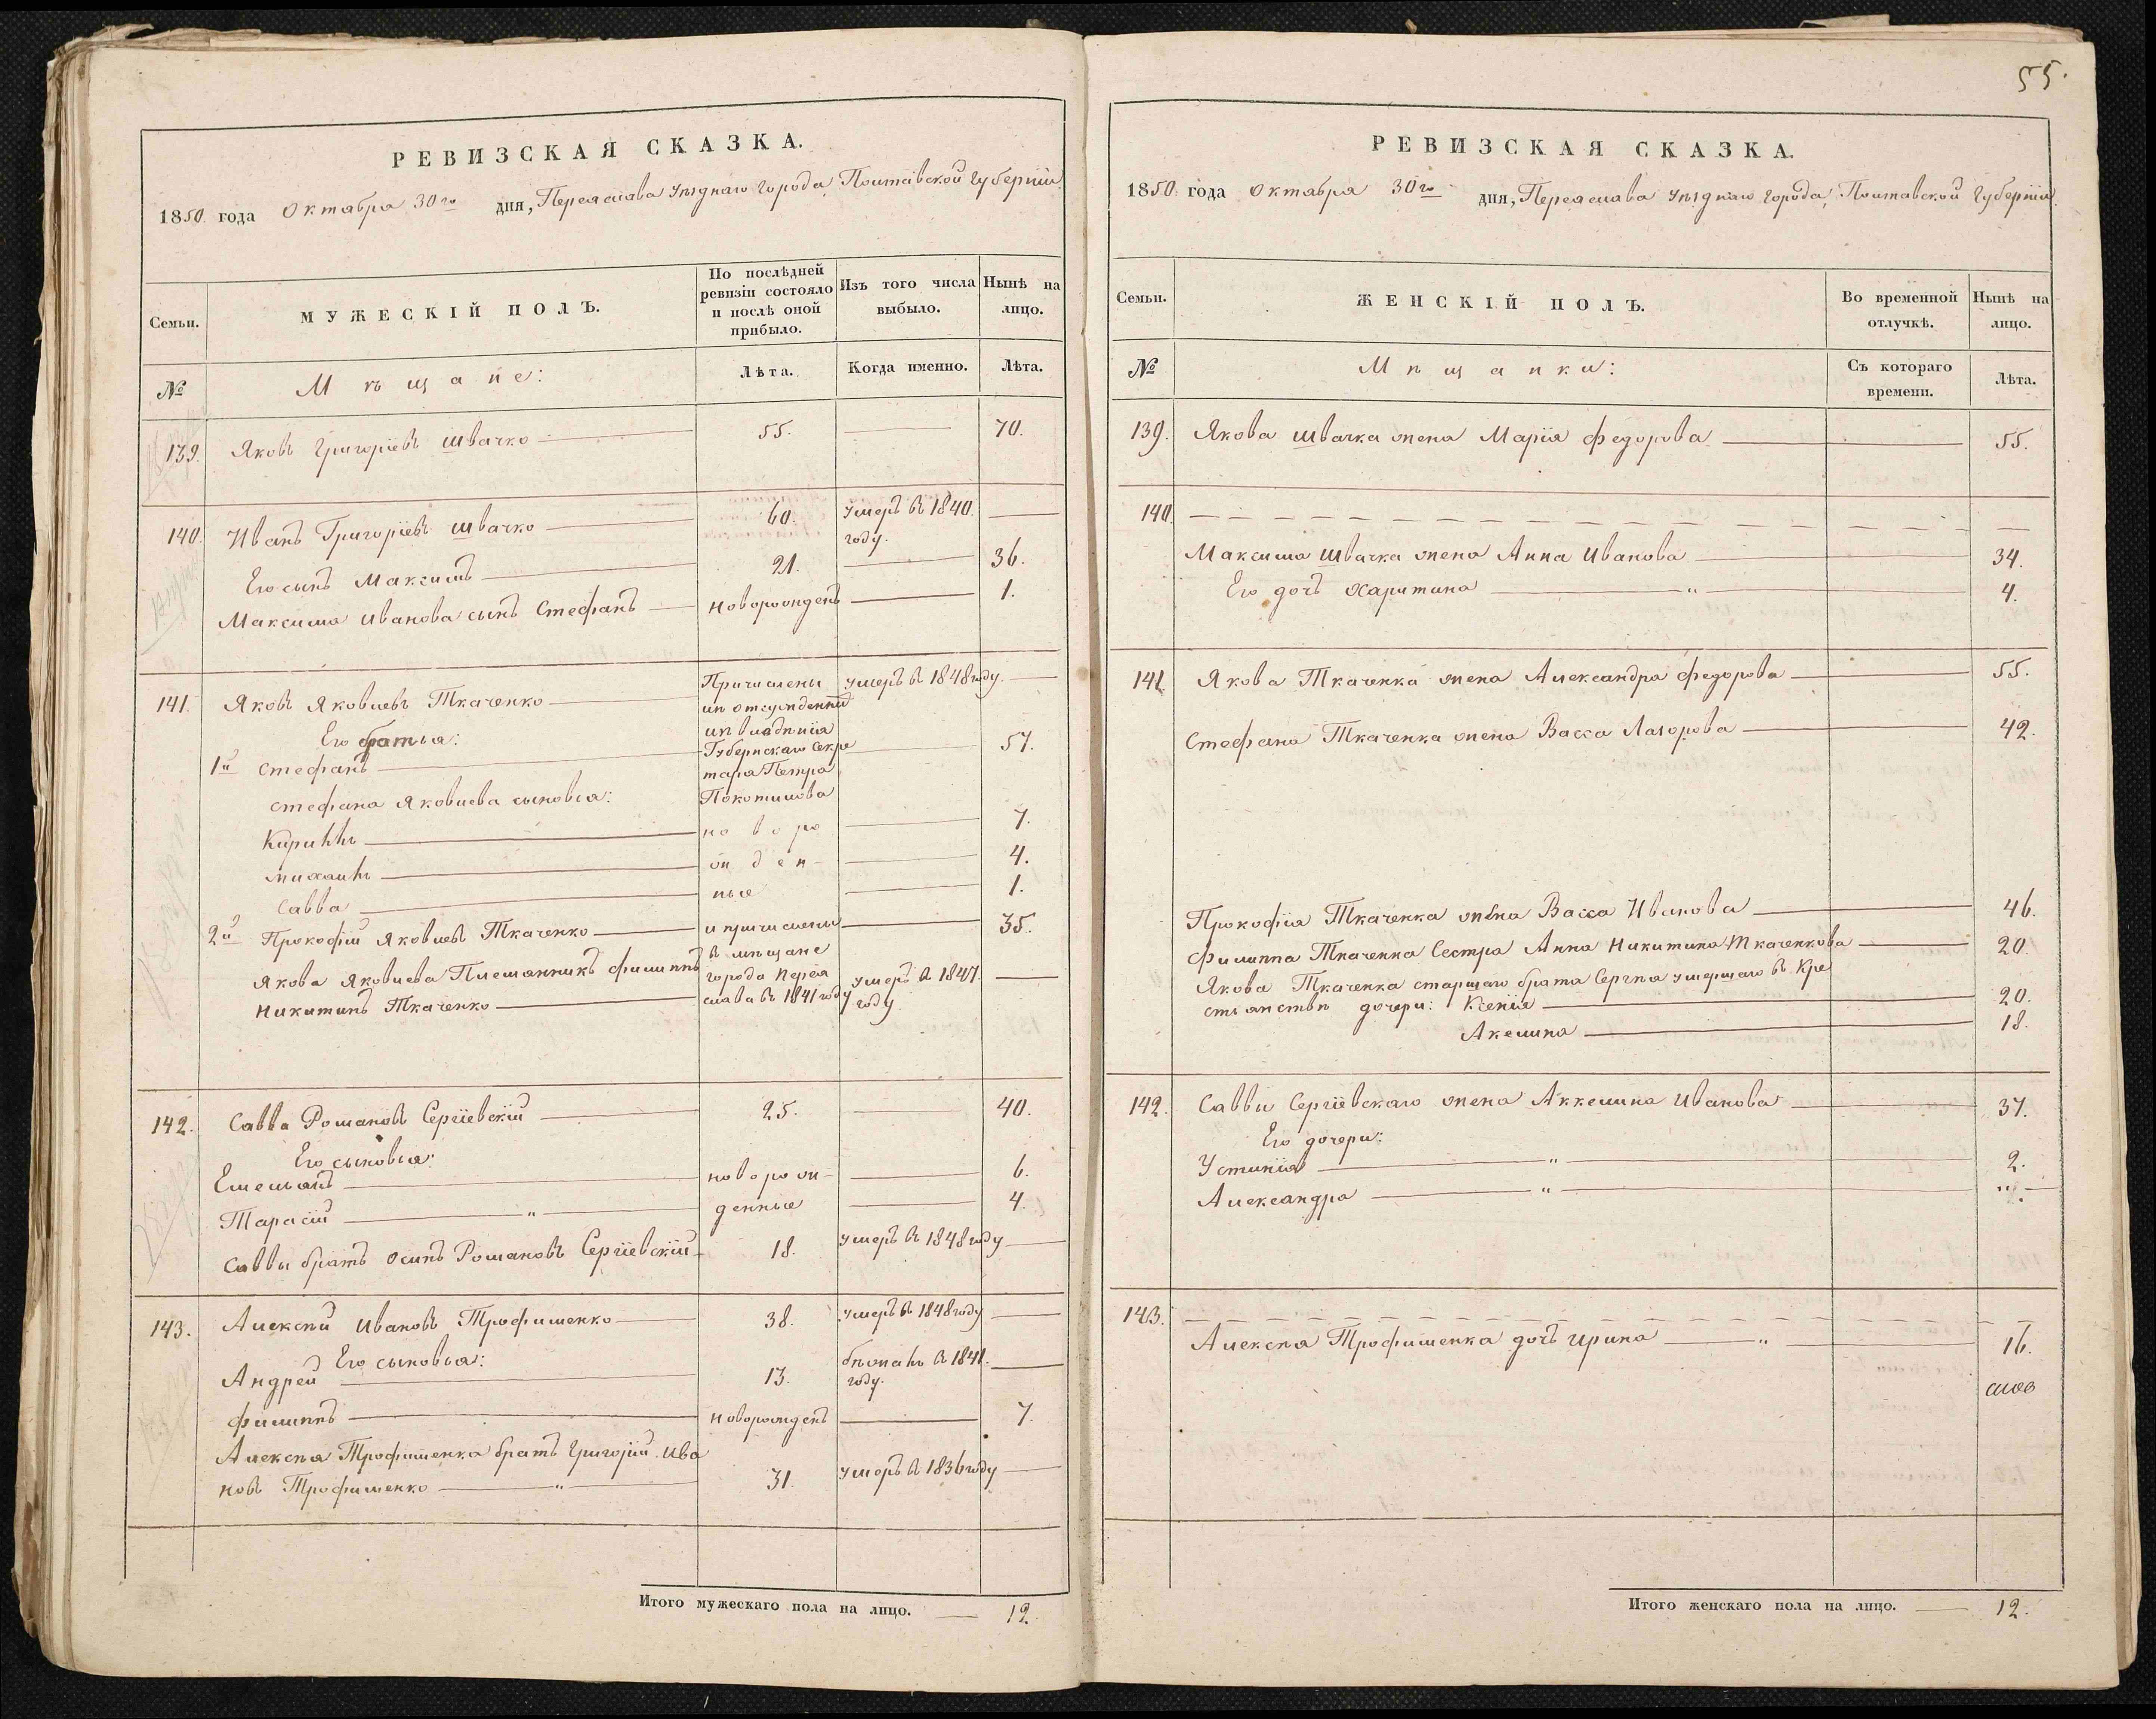 РЕВИЗСКАЯ СКАЗКА.
1850. года Октября 30го дня, Переяслава уѣзднаго города, Полтавской Губерніи.
Семьи.
МУЖЕСКІЙ ПОЛЪ.
По послѣдней ревизіи состояло и послѣ оной прибыло.
Изъ того числа выбыло.
Нынѣ на лицо.
№
Мѣщане:
Лѣта.
Когда именно.
Лѣта.
139. Яковъ Григоріевъ Швачко — 55. — 70.
140. Иванъ Григоріевъ Швачко — 60. Умеръ въ 1840. году. —
Его сынъ Максимъ — 21. — 36.
Максима Иванова сынъ Стефанъ — новорожденъ — 1.
141. Яковъ Яковлевъ Ткаченко — умеръ въ 1848 году. —
Его братья:
1й Стефанъ — 57.
Стефана Яковлева сыновья:
Кирилъ — 7.
Михаилъ — 4.
Савва — 1.
2й Прокофій Яковлевъ Ткаченко — 35.
Якова Яковлева Племянникъ Филиппъ
Никитинъ Ткаченко — умеръ в 1847. году. —
Причислены
изъ отсужденныхъ
изъ владѣнія
Губернскаго Секре
таря Петра
Покотилова
новоро
жден-
ные
и причислены
въ мѣщане
города Перея
слава въ 1841 году
142. Савва Романовъ Сергіевскій — 25. 40.
Его сыновья:
Емельянъ — новорож- — 6.
Тарасій — " — денные — 4.
Саввы братъ Осипъ Романовъ Сергіевскій — 18. умеръ в 1848 году —
143. Алексѣй Ивановъ Трофименко — 38. умеръ въ 1848 году —
Его сыновья:
Андрей — 13. бѣжалъ в 1841. году. —
Филиппъ — новорожденъ — 7.
Алексѣя Трофименка братъ Григорій Ива
новъ Трофименко — " — 31. умеръ в 1836 году —
Итого мужескаго пола на лицо. — 12.
55.
РЕВИЗСКАЯ СКАЗКА.
1850. года Октября 30го дня, Переяслава уѣзднаго города, Полтавской Губерніи.
Семьи.
ЖЕНСКІЙ ПОЛЪ.
Во временной отлучкѣ.
Нынѣ на лицо.
№
Мѣщанки:
Съ котораго времени.
Лѣта.
139. Якова Швачка жена Марія Федорова — 55.
140. — — —
Максима Швачка жена Анна Иванова — 34.
Его дочь Харитина — " — 4.
141. Якова Ткаченка жена Александра Федорова — 55.
Стефана Ткаченка жена Васса Лазорова — 42.
Прокофія Ткаченка жена Васса Иванова — 46.
Филиппа Ткаченка Сестра Анна Никитина Ткаченкова — 20.
Якова Ткаченка старшаго брата Сергѣя умершаго въ Кре
стьянствѣ дочери: Ксенія — 20.
Акелина — 18.
142. Саввы Сергіевскаго жена Аккелина Иванова — 37.
Его дочери:
Устинія — " — 2.
Александра — " —
143. — — —
Алексѣя Трофименка дочь Ирина — " — 16.
Итого женскаго пола на лицо. — 12.